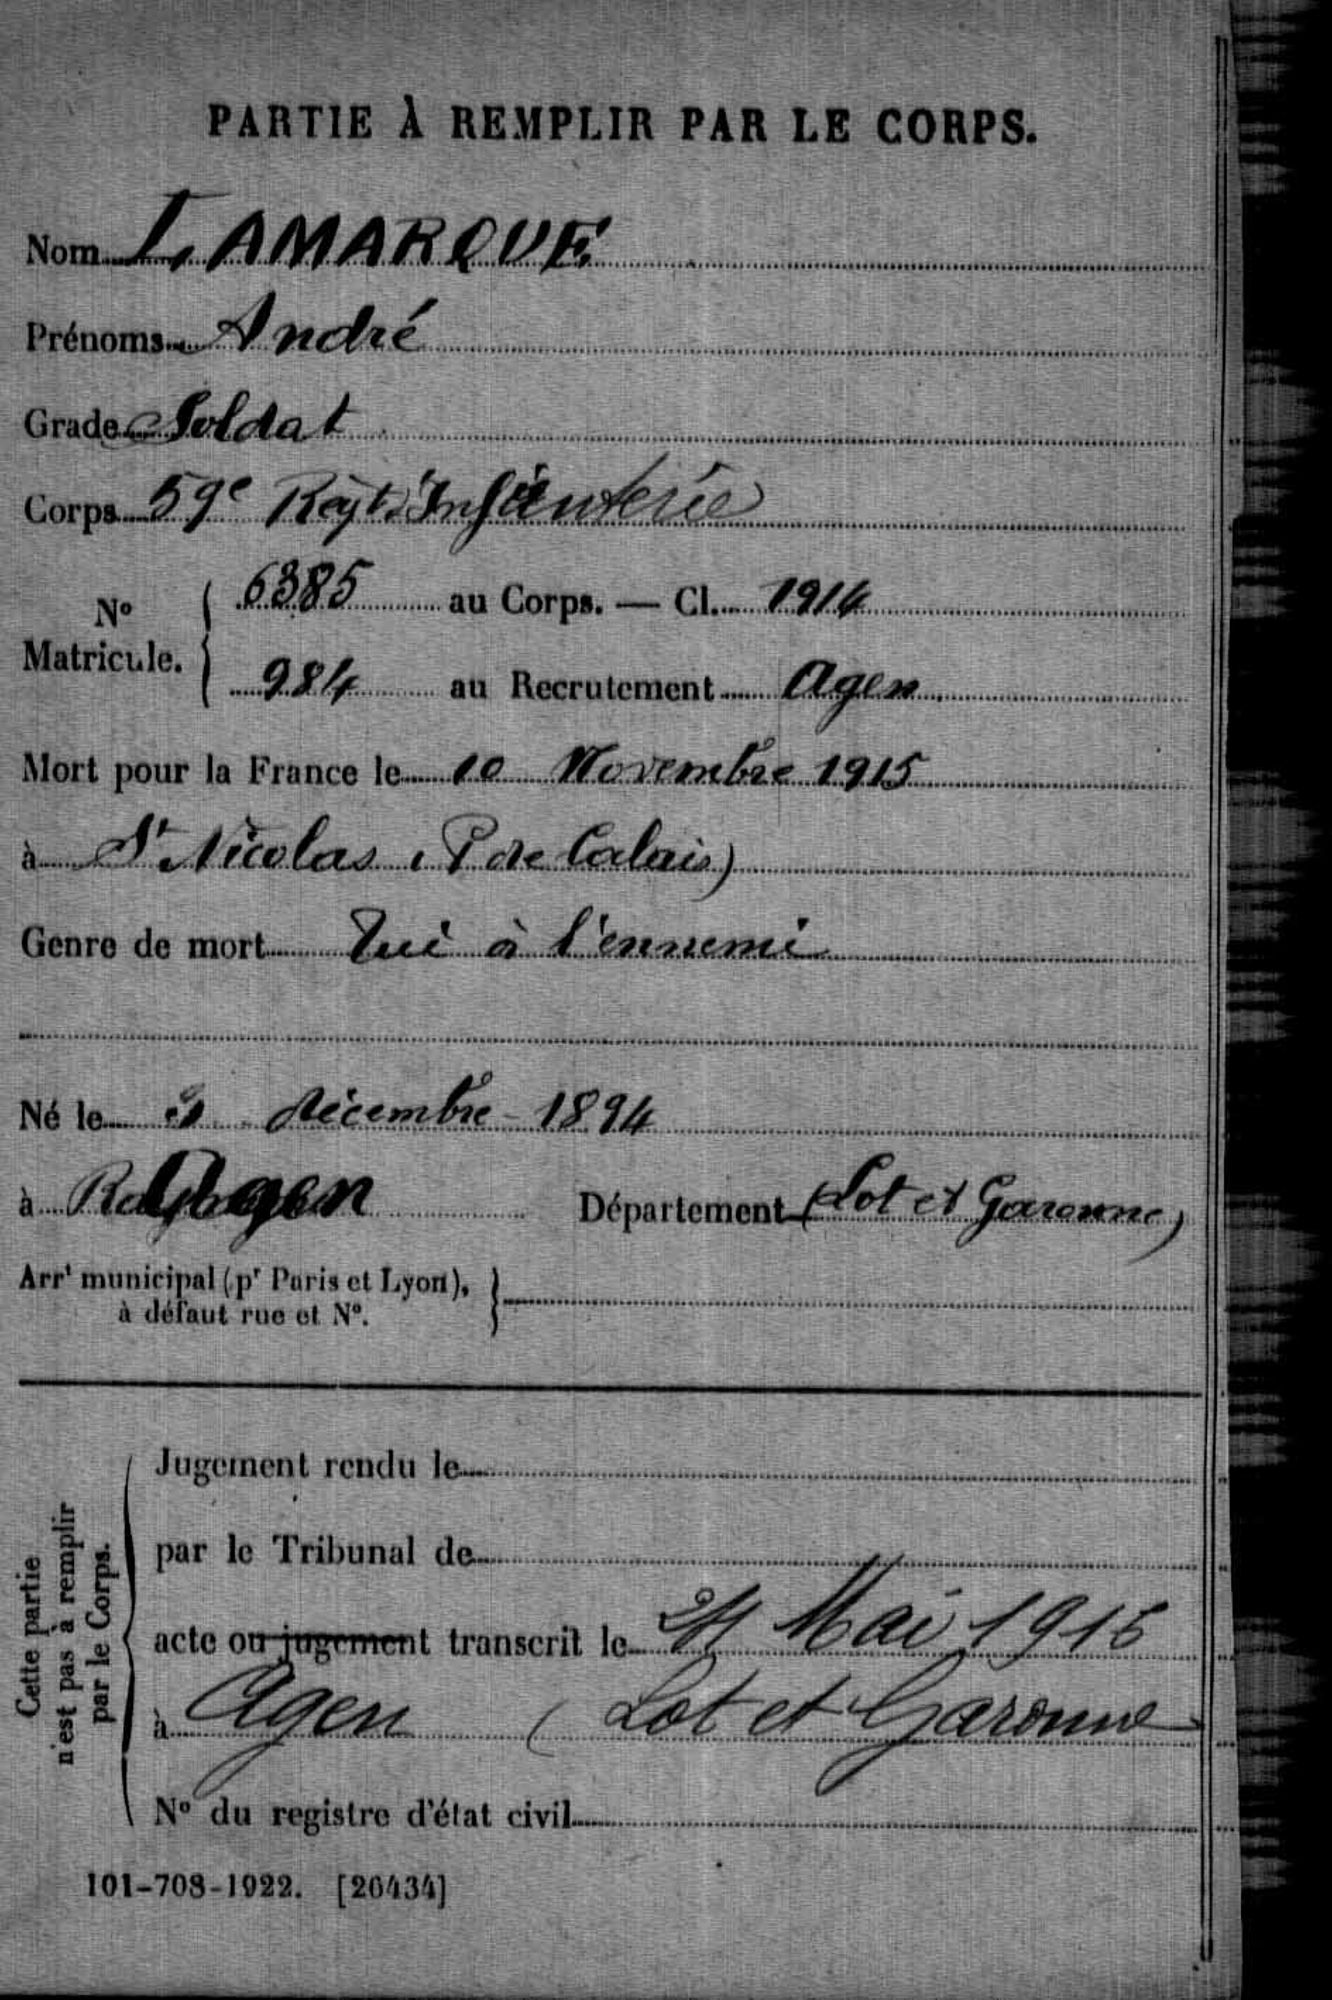 PARTIE À REMPLIR PAR LE CORPS.
Nom LAMARQUE
Prénoms André
Grade Soldat
Corps 59e Regt d'Infanterie
No Matricule. 6385 au Corps. — Cl. 1914
984 au Recrutement Agen
Mort pour la France le 10 Novembre 1915
à St Nicolas (P de Calais)
Genre de mort Tué à l'ennemi
Né le décembre 1894
à Agen Département (Lot et Garonne)
Arrt municipal (pr Paris et Lyon),
à défaut rue et No.
Cette partie
n'est pas à remplir
par le Corps.
Jugement rendu le
par le Tribunal de
acte ou jugement transcrit le 24 Mai 1916
à Agen (Lot et Garonne
No du registre d'état civil
101-708-1922. [26434]